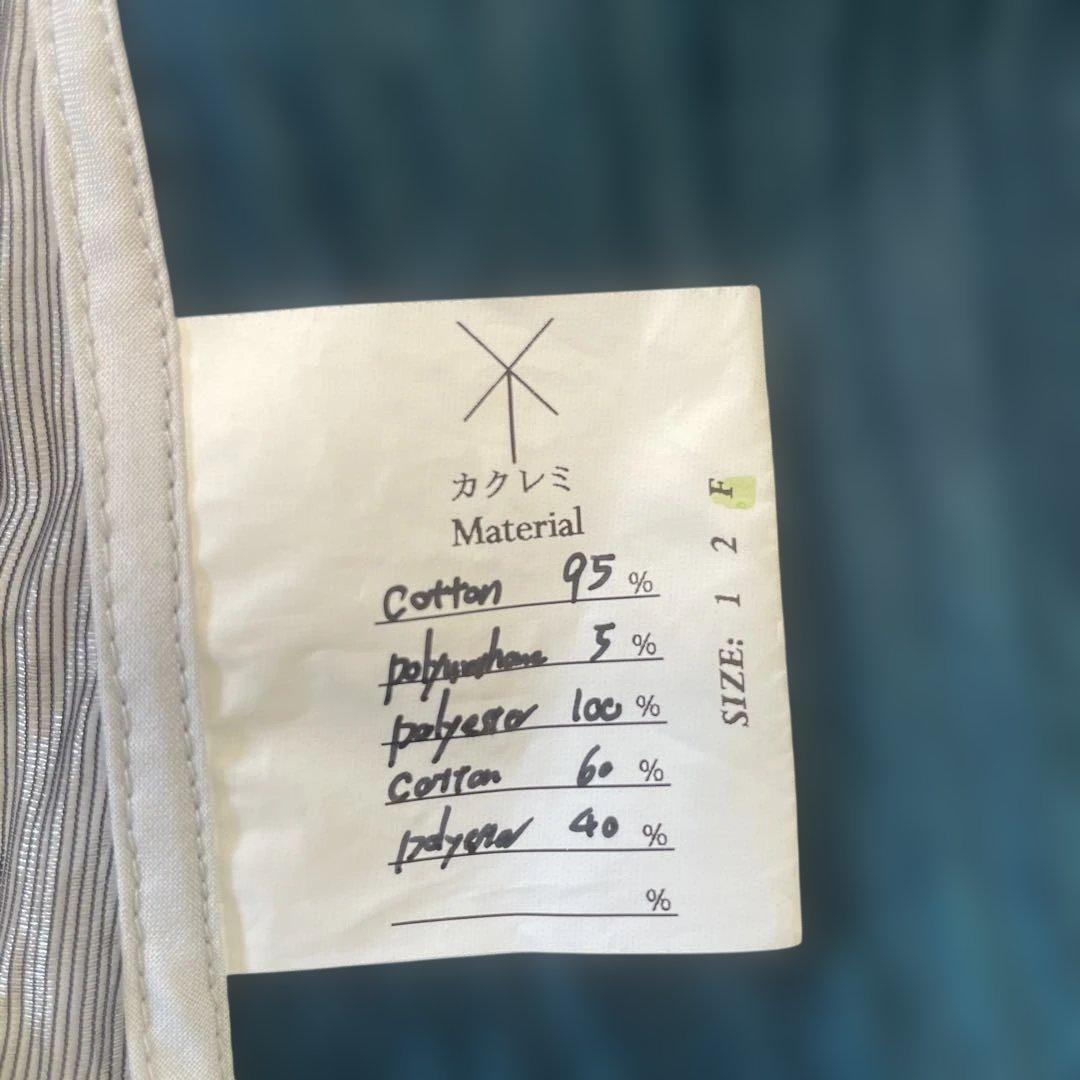 カクレミ
Material
Cotton 95 %
polyurethane 5 %
polyester 100 %
Cotton 60 %
polyester 40 %
%
SIZE: 1 2 F